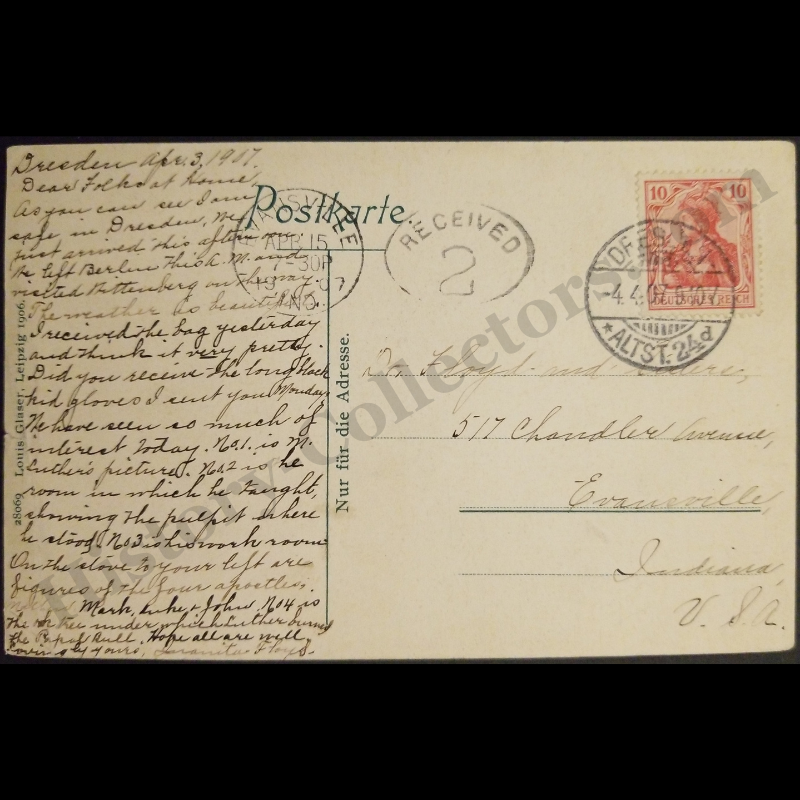 Dresden Apr. 3, 1907.
Dear Folks at Home
As you can see I am
safe in Dresden, We
just arrived this after
We left Berlin this A.M. and
visited Wittenberg on the way.
The weather is beautiful.
I received the bag yesterday
and think it very pretty.
Did you receive the long black
kid gloves I sent you Monday.
We have seen so much of
interest today. No.1. is M.
Luther's picture. No.2 is he
room in which he taught,
showing the pulpit where
he stood. No 3 is his work room
On the stove to your left are
figures of the four apostles,
Mark, Luke & John. No 4 is
the tree under which Luther burned
the Papal Bull. Hope all are well
Lovingly yours, Juanita Floyd.
Postkarte.
EVANSVILLE
APR 15
7-30P
1907
IND.
RECEIVED
2
10 10
DEUTSCHES REICH
DRESDEN
4.4.07
*ALTST. 24d
Floyd and
517 Chandler Avenue,
Evansville,
Indiana,
U. S. A.
Nur für die Adresse.
28069 Louis Glaser, Leipzig 1906.
History Collectors.com